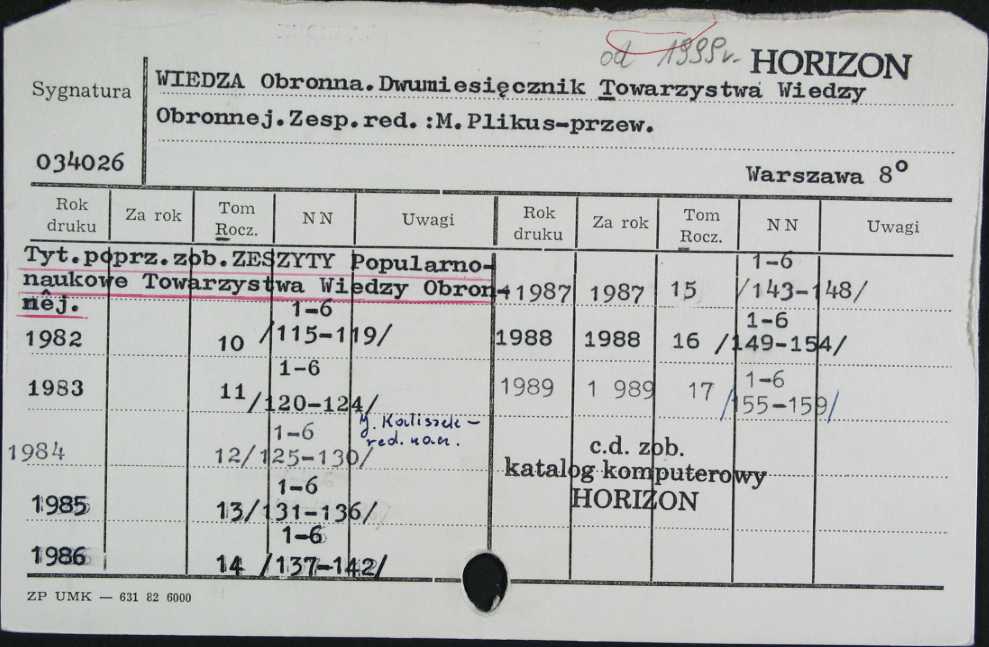 od 1999r. HORIZON
Sygnatura
WIEDZA Obronna.Dwumiesięcznik Towarzystwa Wiedzy
Obronnej.Zesp.red.:M.Plikus-przew.
034026
Warszawa 8°
Rok druku Za rok Tom Rocz. NN Uwagi Rok druku Za rok Tom Rocz. NN Uwagi
Tyt.poprz.zob.ZESZYTY Popularno-
naukowe Towarzystwa Wiedzy Obron-
nej.
1-6
1982 10 /115-119/
1-6
1983 11 /120-124/
J. Kaliszek -
red. nacz.
1-6
1984 12/125-130/
1-6
1985 13/131-136/
1-6
1986 14 /137-142/
1-6
1987 1987 15 /143-148/
1-6
1988 1988 16 /149-154/
1-6
1989 1 989 17 /155-159/
c.d. zob.
katalog komputerowy
HORIZON
ZP UMK — 631 82 6000